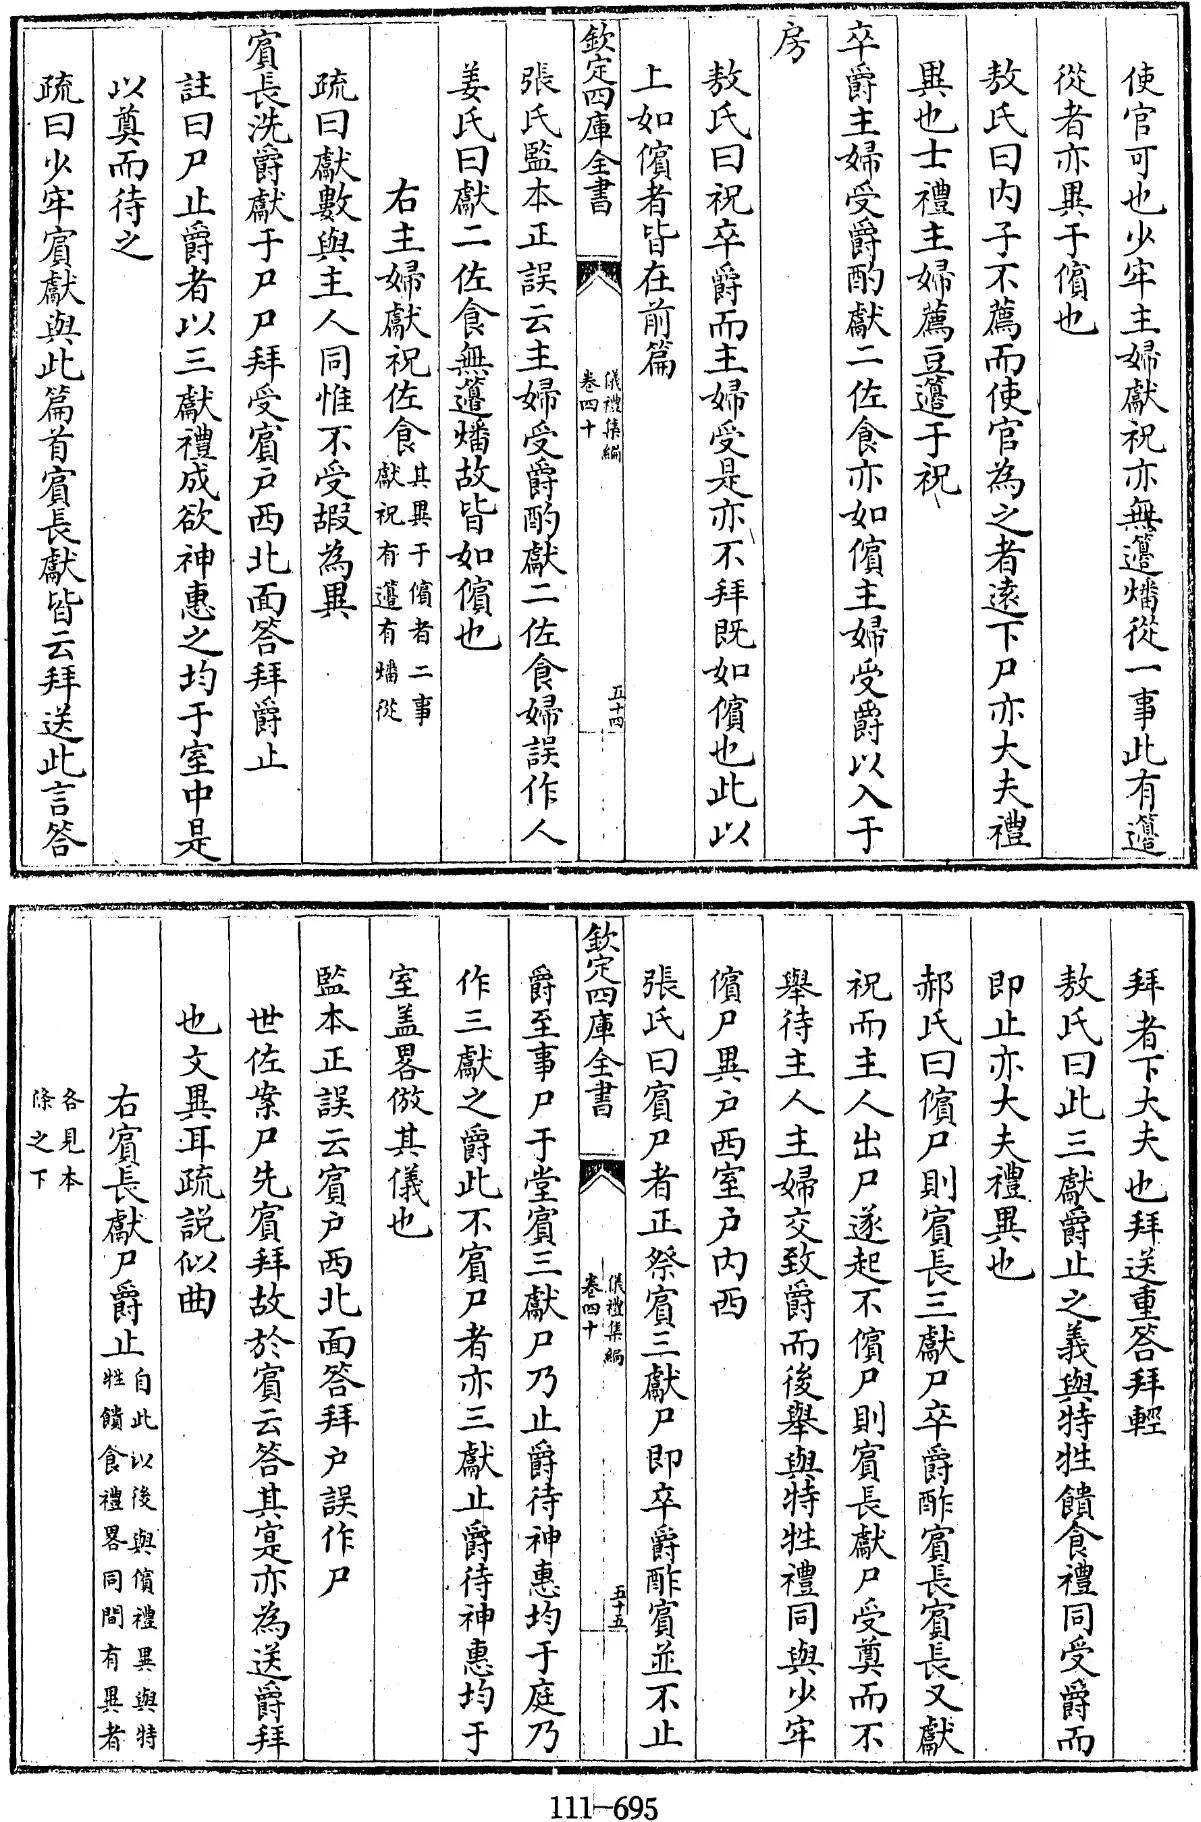 使官可也少牢主婦獻祝亦無籩燔從一事此有籩
從者亦異于儐也
敖氏曰内子不薦而使官為之者遠下尸亦大夫禮
異也士禮主婦薦豆籩于祝
卒爵主婦受爵酌獻二佐食亦如儐主婦受爵以入于
房
敖氏曰祝卒爵而主婦受是亦不拜既如儐也此以
上如儐者皆在前篇
欽定四庫全書
儀禮集編
卷四十
五十四
張氏監本正誤云主婦受爵酌獻二佐食婦誤作人
姜氏曰獻二佐食無籩燔故皆如儐也
右主婦獻祝佐食其異于儐者二事
獻祝有籩有燔從
疏曰獻數與主人同惟不受嘏為異
賔長洗爵獻于尸尸拜受賔户西北面答拜爵止
註曰尸止爵者以三獻禮成欲神惠之均于室中是
以奠而待之
疏曰少牢賔獻與此篇首賔長獻皆云拜送此言答
拜者下大夫也拜送重答拜輕
敖氏曰此三獻爵止之義與特牲饋食禮同受爵而
即止亦大夫禮異也
郝氏曰儐尸則賔長三獻尸卒爵酢賔長賔長又獻
祝而主人出尸遂起不儐尸則賔長獻尸受奠而不
舉待主人主婦交致爵而後舉與特牲禮同與少牢
儐尸異户西室户内西
張氏曰賔尸者正祭賔三獻尸即卒爵酢賔並不止
欽定四庫全書
儀禮集編
卷四十
五十五
爵至事尸于堂賔三獻尸乃止爵待神惠均于庭乃
作三獻之爵此不賔尸者亦三獻止爵待神惠均于
室盖畧倣其儀也
監本正誤云賔户西北面答拜户誤作尸
世佐案尸先賔拜故於賔云答其寔亦為送爵拜
也文異耳疏説似曲
右賔長獻尸爵止自此以後與儐禮異與特
牲饋食禮畧同間有異者
各見本
條之下
111-695